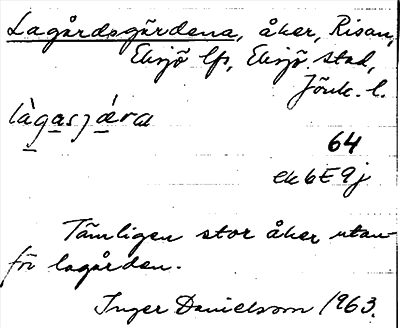 Lagårdsgärdena, åker, Risan,
Eksjö lfs, Eksjö stad,
Jönk. l.
làgasjæ̀ra
64
ek 6E9j
Tämligen stor åker utan-
för lagården.
Inger Danielsson 1963.